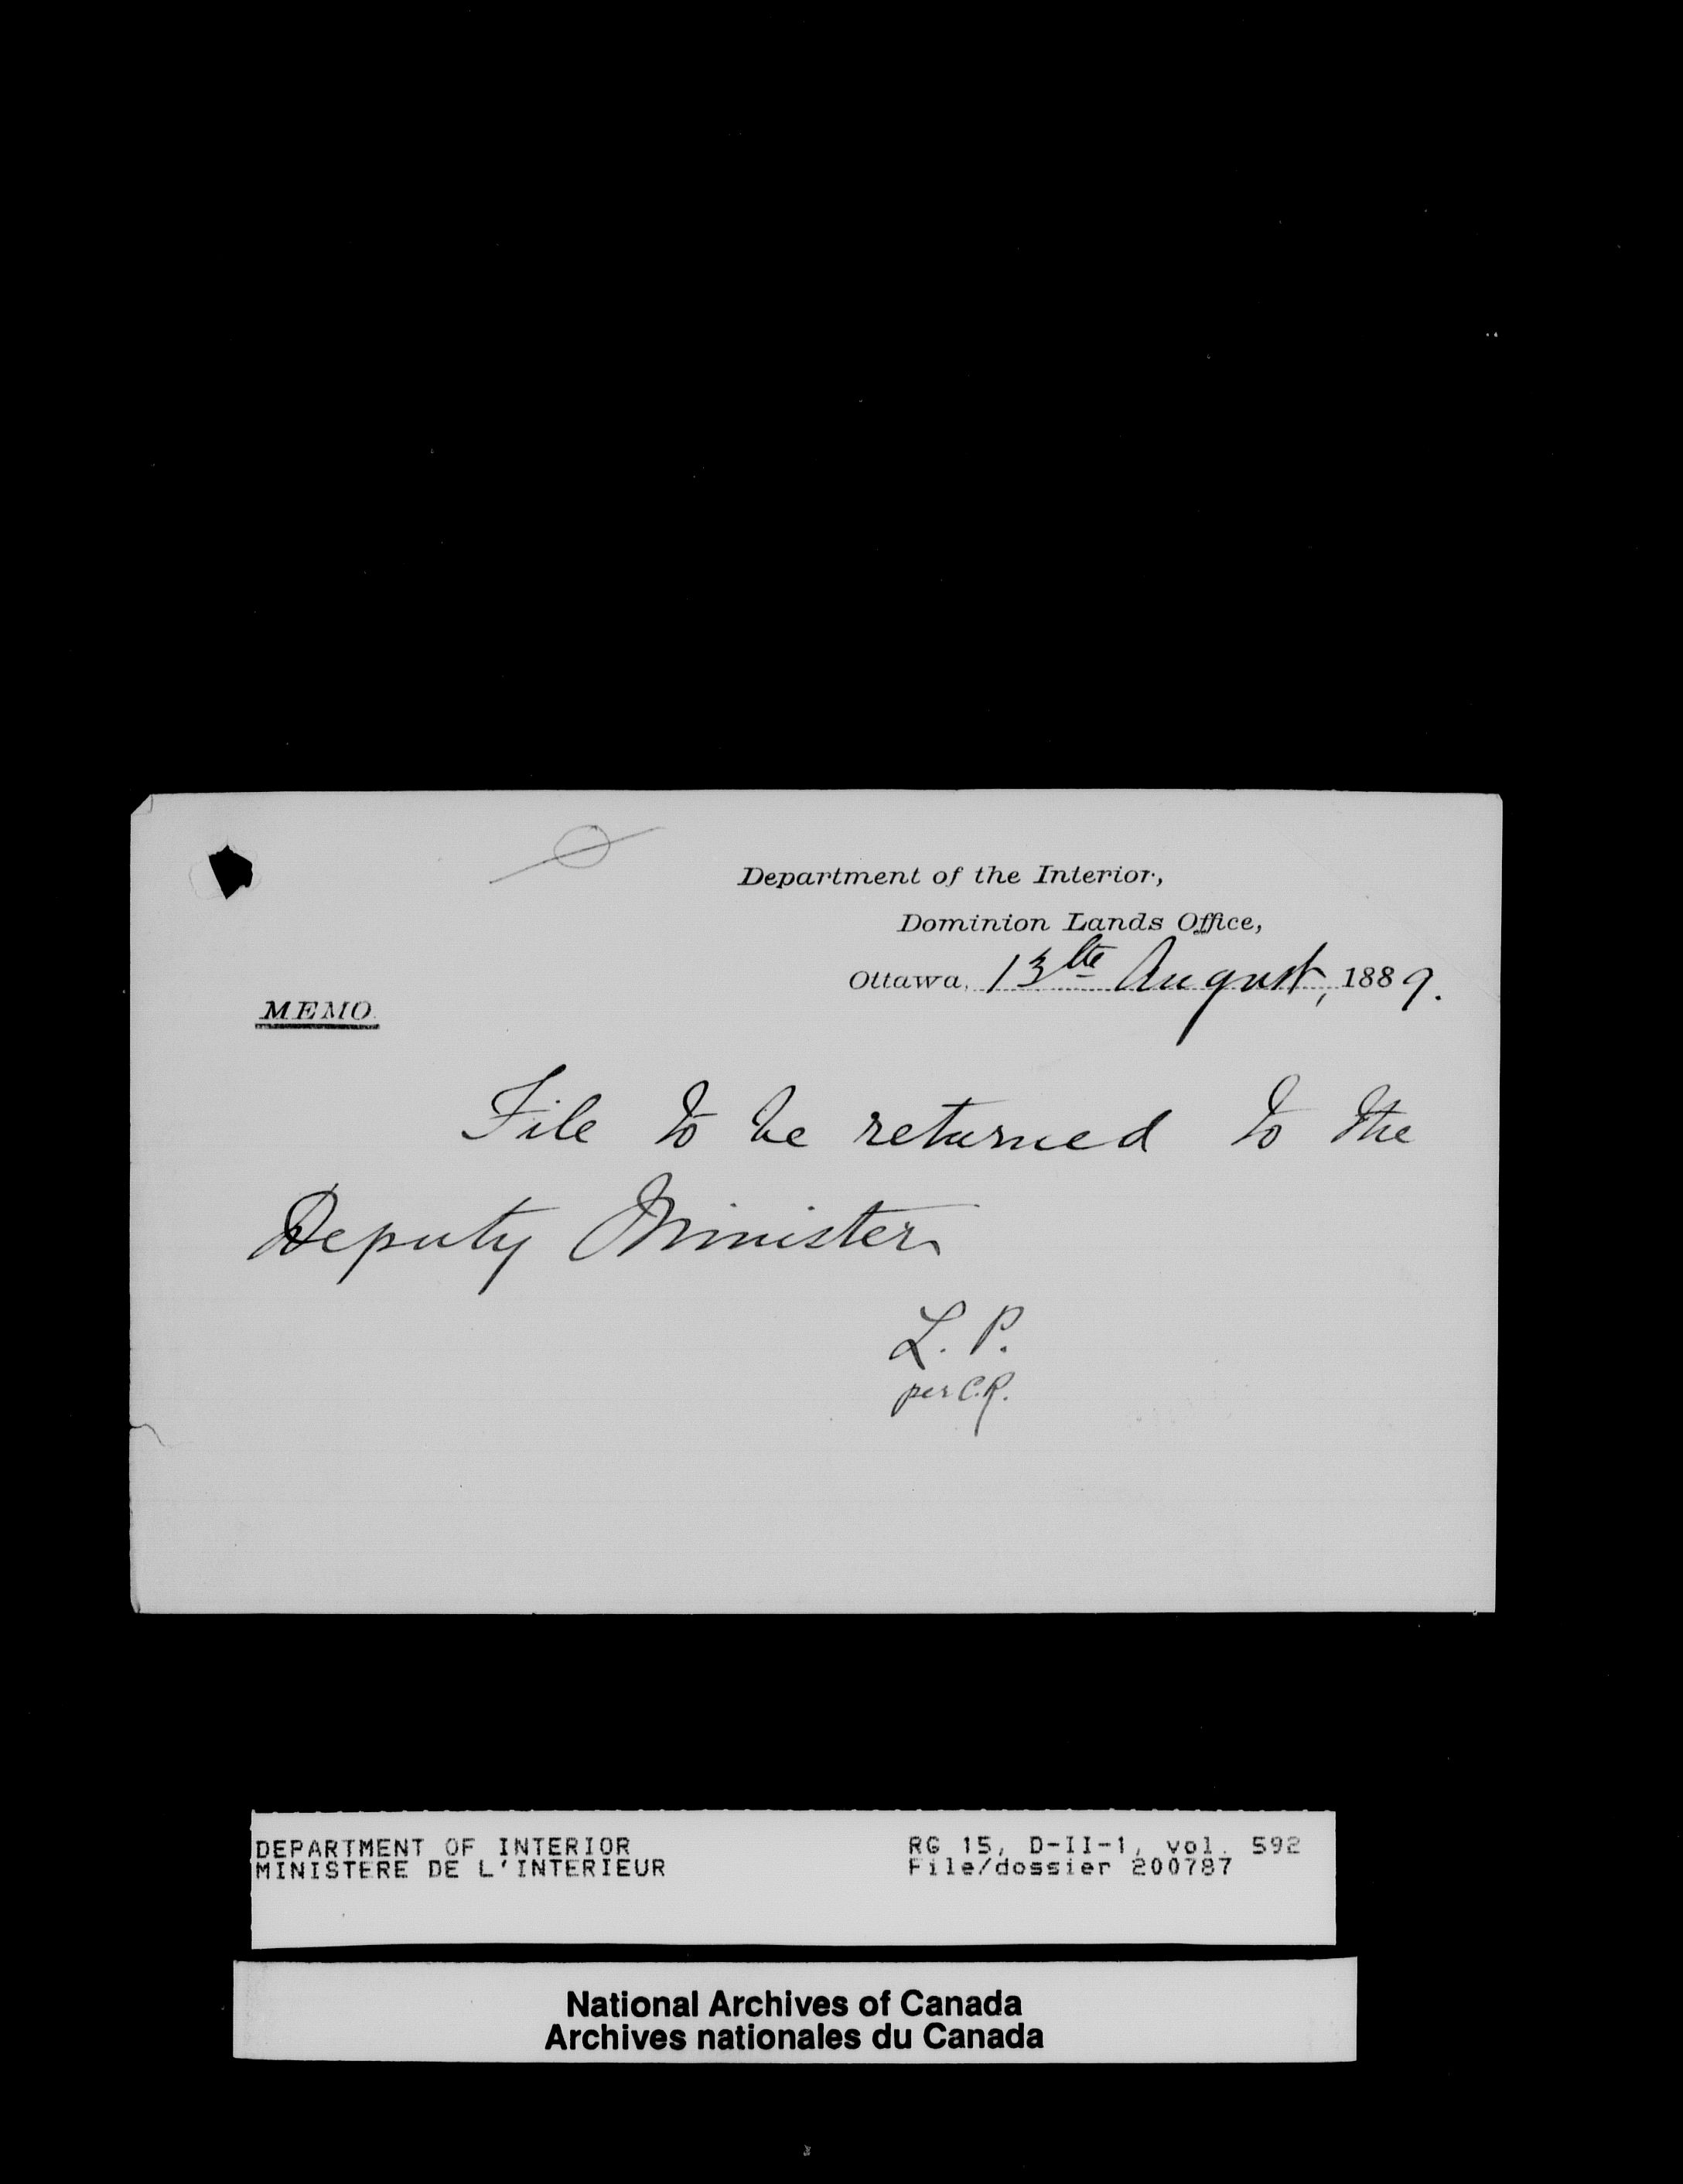 Department of the Interior,
Dominion Lands Office,
Ottawa, 13th August, 1889.
MEMO.
File to be returned to the
Deputy Minister
L. P.
per C.R.
DEPARTMENT OF INTERIOR
MINISTERE DE L'INTERIEUR
RG 15, D-II-1, vol. 592
File/dossier 200787
National Archives of Canada
Archives nationales du Canada